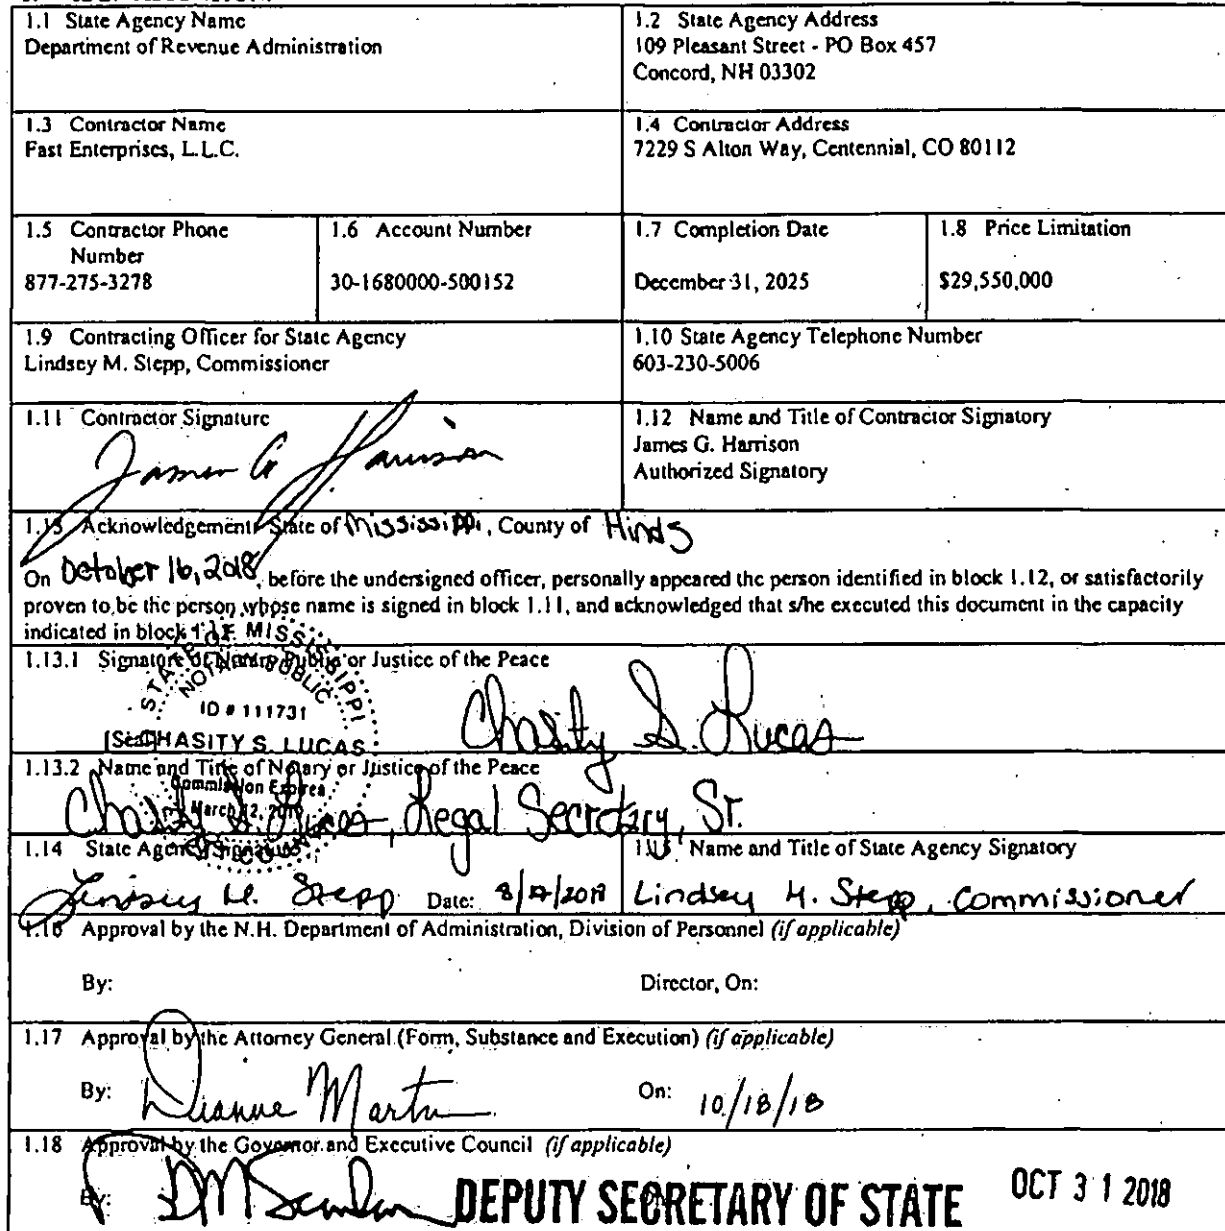 1.1 State Agency Name
Department of Revenue Administration
1.2 State Agency Address
109 Pleasant Street - PO Box 457
Concord, NH 03302
1.3 Contractor Name
Fast Enterprises, L.L.C.
1.4 Contractor Address
7229 S Alton Way, Centennial, CO 80112
1.5 Contractor Phone
Number
877-275-3278
1.6 Account Number
30-1680000-500152
1.7 Completion Date
December 31, 2025
1.8 Price Limitation
$29,550,000
1.9 Contracting Officer for State Agency
Lindsey M. Stepp, Commissioner
1.10 State Agency Telephone Number
603-230-5006
1.11 Contractor Signature
James G Harrison
1.12 Name and Title of Contractor Signatory
James G. Harrison
Authorized Signatory
1.13 Acknowledgement: State of Mississippi, County of Hinds
On October 16, 2018, before the undersigned officer, personally appeared the person identified in block 1.12, or satisfactorily
proven to be the person whose name is signed in block 1.11, and acknowledged that s/he executed this document in the capacity
indicated in block 1.12.
1.13.1 Signature of Notary Public or Justice of the Peace
STATE OF MISSISSIPPI
NOTARY PUBLIC
ID # 111731
[Seal]
CHASITY S. LUCAS
Commission Expires
Chasity S. Lucas
1.13.2 Name and Title of Notary or Justice of the Peace
Chasity S. Lucas, Legal Secretary, Sr.
1.14 State Agency Signature
Lindsey M. Stepp Date:
1.15 Name and Title of State Agency Signatory
Lindsey M. Stepp, Commissioner
1.16 Approval by the N.H. Department of Administration, Division of Personnel (if applicable)
By: Director, On:
1.17 Approval by the Attorney General (Form, Substance and Execution) (if applicable)
By: Dianne Martin On: 10/18/18
1.18 Approval by the Governor and Executive Council (if applicable)
By:
DEPUTY SECRETARY OF STATE OCT 31 2018